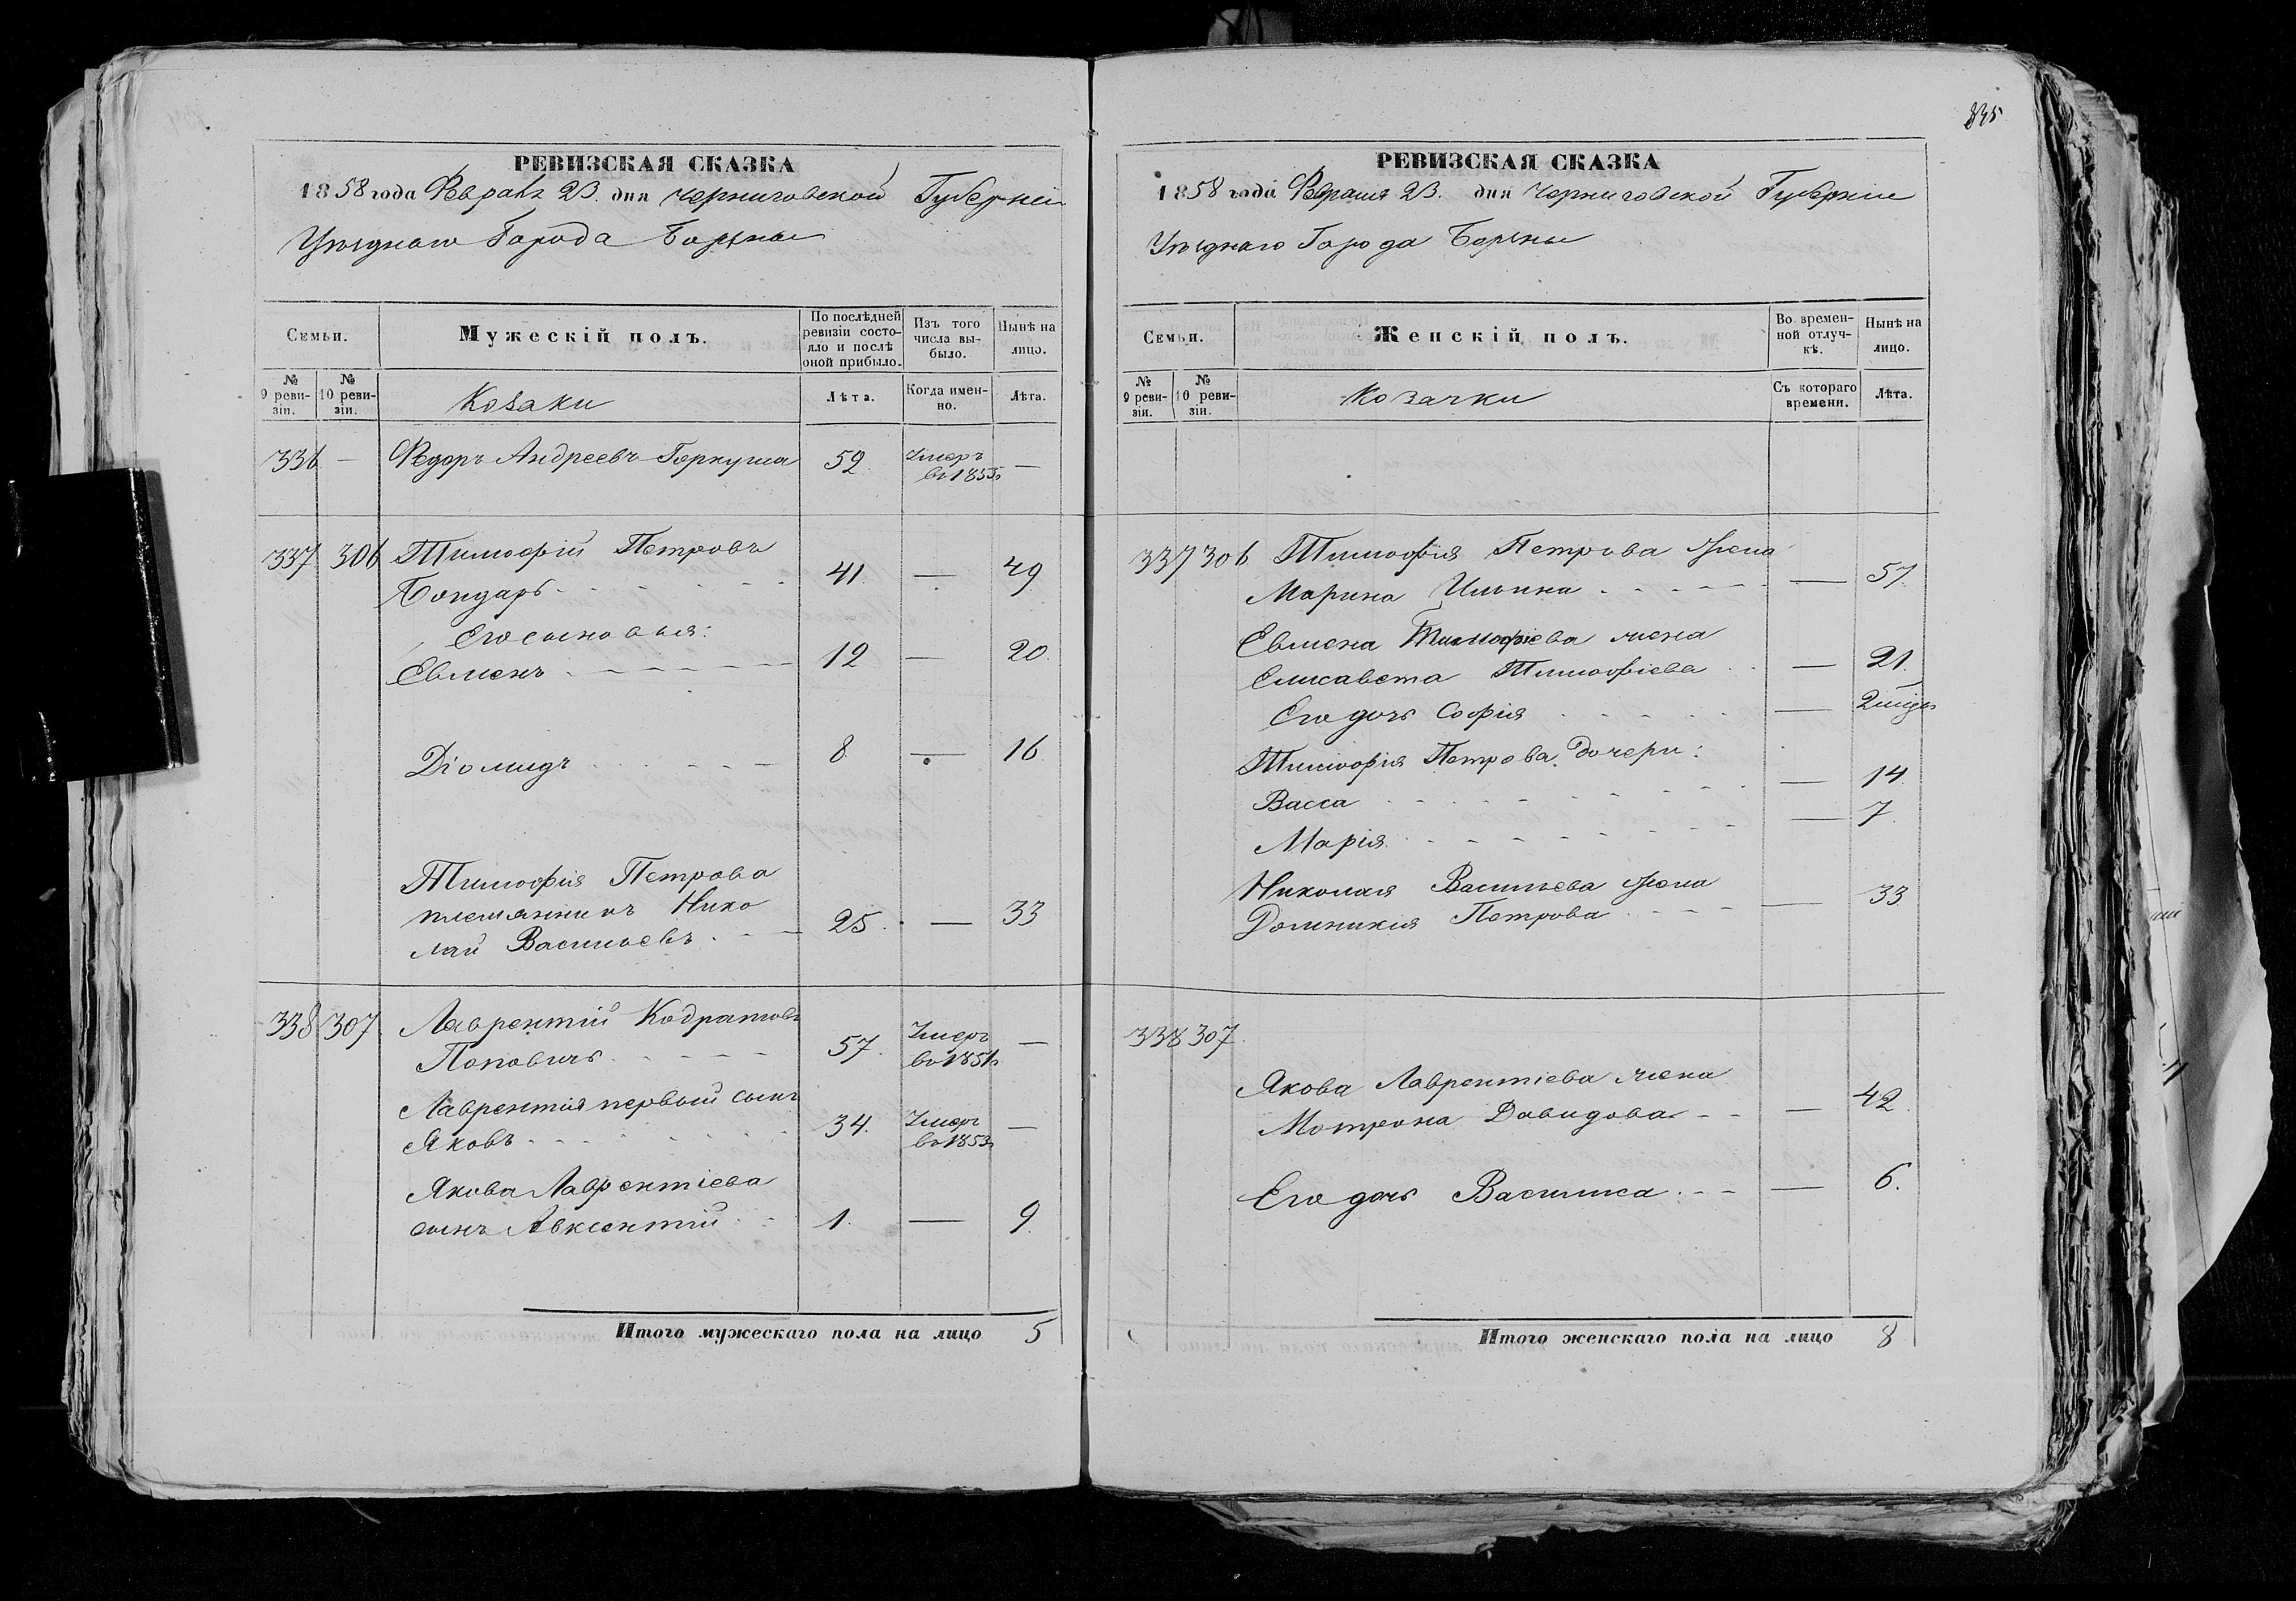 РЕВИЗСКАЯ СКАЗКА
1858 года Февраля 23. дня Черниговской Губерніи
Уѣзднаго Города Борзны
Семьи.
Мужескій полъ.
По послѣдней ревизіи состояло и послѣ оной прибыло.
Изъ того числа выбыло.
Ныне на лицо.
№ 9 ревизіи.
№ 10 ревизіи.
Козаки
Лѣта.
Когда именно.
Лѣта.
336 — Федоръ Андреевъ Горкуша 52. Умеръ —
въ 1855г
337 306 Тимофій Петровъ
Бондарь 41. — 49
Его сыновья:
Евменъ 12 — 20.
Діомидъ 8. — 16
Тимофія Петрова
племянникъ Нико
лай Васильевъ 25. — 33
338 307 Лаврентій Кодратовъ
Поповичъ 57. Умеръ —
въ 1851г
Лаврентія первый сынъ
Яковъ 34. Умеръ —
въ 1853г
Якова Лаврентіева
сынъ Авксентій 1. — 9.
Итого мужескаго пола на лицо 5
РЕВИЗСКАЯ СКАЗКА
1858 года Февраля 23. дня Черниговской Губерніи
Уѣзднаго Города Борзны
Семьи.
Женскій полъ.
Во временной отлучкѣ.
Нынѣ на лицо.
№ 9 ревизіи.
№ 10 ревизіи.
Козачки
Съ котораго времени.
Лѣта.
337 306 Тимофія Петрова жена
Марина Ильина — 51.
Евмена Тимофіева жена
Елисавета Тимофіева — 21.
Его дочь Софія —
Тимофія Петрова дочери:
Васса — 14.
Марія — 7.
Николая Васильева жена
Домникія Петрова — 33
338 307
Якова Лаврентіева жена
Мотрона Давидова — 42.
Его дочь Василиса — 6.
Итого женскаго пола на лицо 8